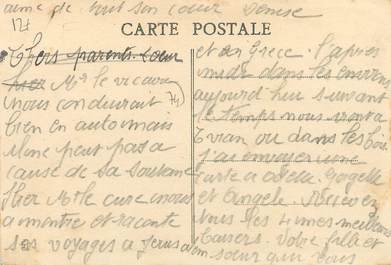 aime de tout son cœur Denise
CARTE POSTALE
Chers parents. Sœur
hier Mr le vicaire
nous conduirait
bien en auto mais
Mane peut pas a
cause de sa soutane
Hier Mr le cure nous
a montre et raconte
ses voyages a Jerusalem
et en Grece. L'apres
midi dans les environs
aujourd hui suivant
le temps nous irons a
ou dans les bois
J'ai envoyer une
carte a Odette. Gogette
et Angele. Recevez
tous les 4 mes meilleurs
baisers. Votre fille et
sœur qui vous